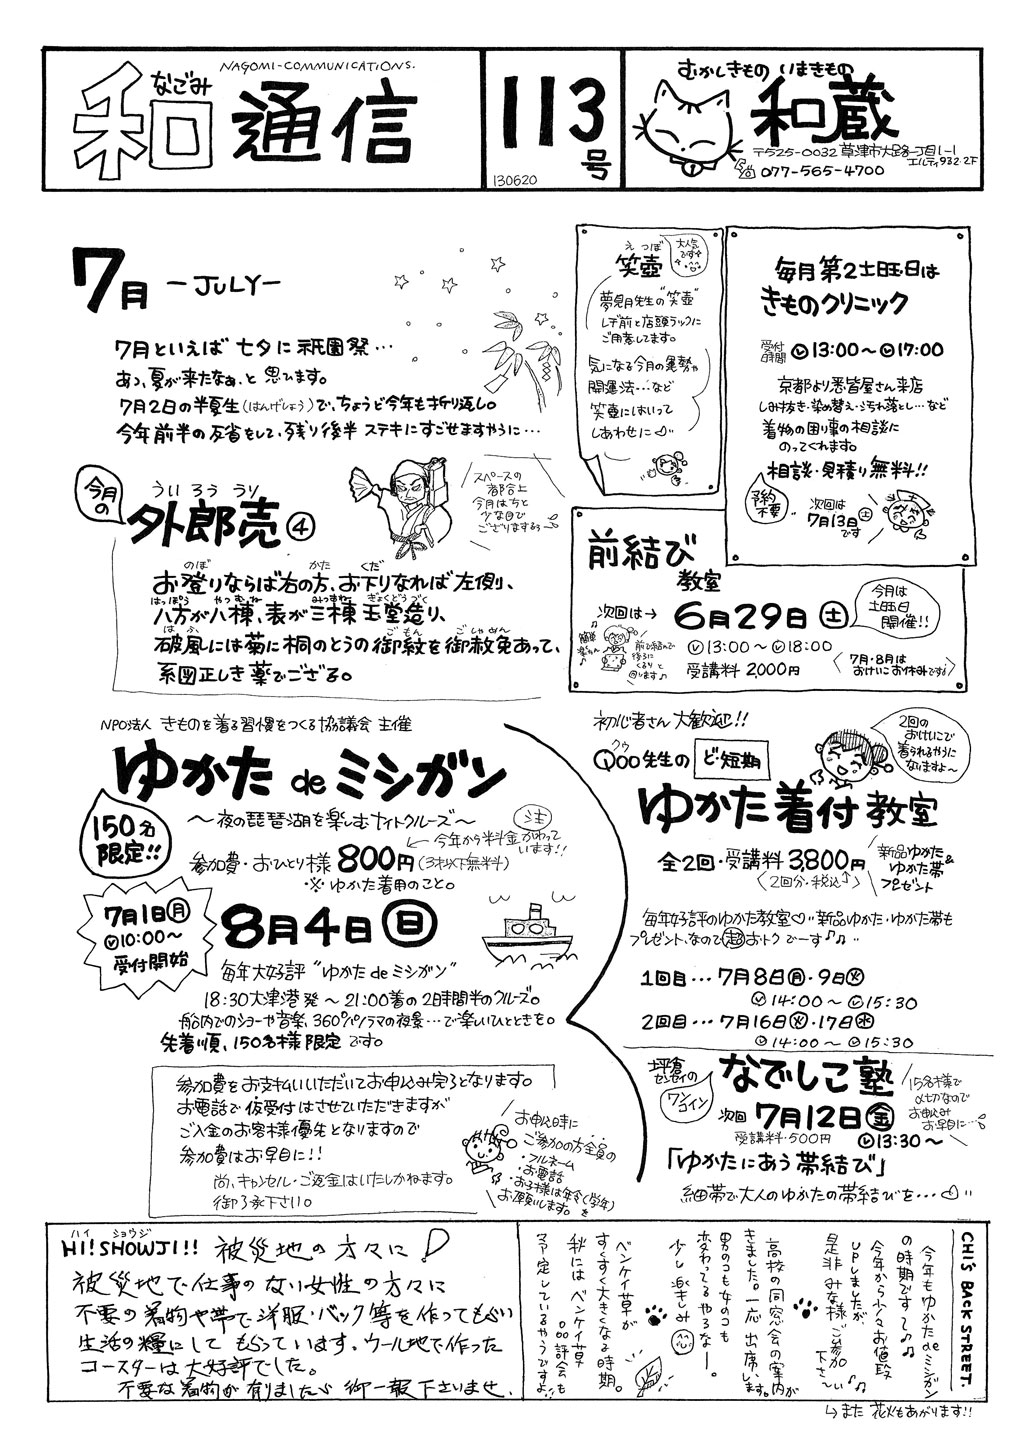 NAGOMI-COMMUNICATIONS.
なごみ
和通信
113号
130620
むかしきもの いまきもの
和蔵
〒525-0032 草津市大路一丁目1-1
エルティ932・2F
077-565-4700
7月 -JULY-
7月といえば 七夕に祇園祭…
あっ、夏が来たなぁ、と 思ひます。
7月2日の半夏生(はんげしょう)で、ちょうど今年も折り返し。
今年前半の反省をして、残り後半 ステキにすごせますやうに…
えつぼ
笑壺
大人気
です
夢見月先生の"笑壺"
レヂ前と店頭ラックに
ご用意してます。
気になる今月の運勢や
開運法…など
笑壺にはいって
しあわせに♡
毎月第2土曜日は
きものクリニック
受付
時間
13:00〜17:00
京都より悉皆屋さん来店
しみ抜き・染め替え・汚れ落とし…など
着物の困り事の相談に
のってくれます。
相談・見積り無料!!
予約
不要
次回は
7月13日土
です
今月の
ういろううり
外郎売④
スペースの
都合上
今月はちと
少な目で
ござりまするぅ〜
お登りならば右の方、お下りなれば左側、
八方が八棟、表が三棟玉堂造り、
破風には菊に桐のとうの御紋を御赦免あって、
系図正しき薬でござる。
前結び
教室
次回は→ 6月29日土
今月は
土曜日
開催!!
13:00〜18:00
受講料 2,000円
簡単
楽ちん
前で結んで
後ろに
くるりと
回します♪
7月・8月は
おけいこお休みです
NPO法人 きものを着る習慣をつくる協議会 主催
ゆかた de ミシガン
〜夜の琵琶湖を楽しむナイトクルーズ〜
150名
限定!!
注
←今年から料金がかわって
います!!
参加費・おひとり様 800円(3才以下無料)
・※ゆかた着用のこと。
7月1日月
10:00〜
受付開始
8月4日日
毎年大好評 "ゆかた de ミシガン"
18:30大津港発〜21:00着の2時間半のクルーズ。
船内でのショーや音楽、360°パノラマの夜景…で楽しいひとときを。
先着順、150名様限定です。
参加費をお支払いいただいてお申込み完了となります。
お電話で仮受付はさせていただきますが
ご入金のお客様優先となりますので
参加費はお早目に!!
尚、キャンセル・ご返金はいたしかねます。
御了承下さい。
お申込時に
ご参加の方全員の
・フルネーム
・お電話
・お子様は年令(学年)を
お願いします。
初心者さん大歓迎!!
クゥ
Qoo先生の ど・短期
ゆかた着付教室
2回の
おけいこで
着られるやうに
なりますよ〜
全2回・受講料 3,800円
〈2回分・税込↑〉
新品ゆかた&
ゆかた帯
プレゼント
毎年好評のゆかた教室♡新品ゆかた・ゆかた帯も
プレゼント、なので超おトクでーす♪♪
1回目…7月8日月・9日火
14:00〜15:30
2回目…7月16日火・17日水
14:00〜15:30
坪倉
センセイの
ワン
コイン
なでしこ塾
次回 7月12日金
受講料・500円 13:30〜
15名様で
〆切なので
お申込み
お早目に…
「ゆかたにあう帯結び」
細帯で大人のゆかたの帯結びを…♡
ハイ ショウジ
HI! SHOWJI!! 被災地の方々に!
被災地で仕事のない女性の方々に
不要の着物や帯で洋服・バック等を作ってもらい
生活の糧にして もらっています。ウール地で作った
コースターは大好評でした。
不要な着物が有りましたら 御一報下さいませ.
CHI'S BACK STREET.
今年もゆかたdeミシガン
の時期です〜♪♪
今年から少々お値段
UPしましたが、
是非みな様ご参加
下さ〜い
高校の同窓会の案内が
きました。一応出席します。
男のコも女のコも
変わってるやろなー。
少し楽しみ
ベンケイ草が
すくすく大きくなる時期。
秋にはベンケイ草
品評会も
予定しているやうですよ!!
↳また 花火もあがります!!